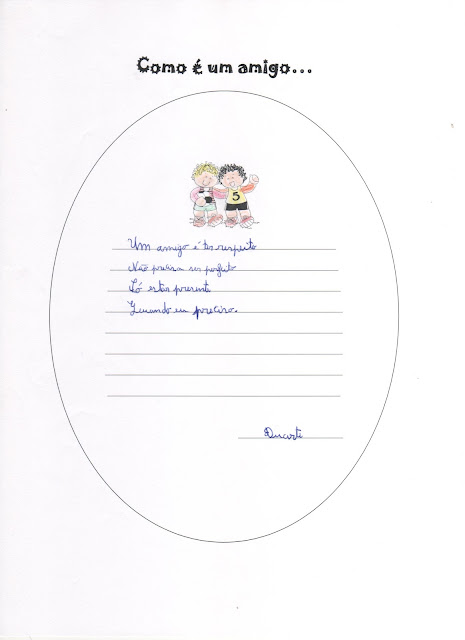 Como é um amigo...
5
Um amigo é ter respeito
Não precisa ser perfeito
Só estar presente
Quando eu preciso.
Duarte